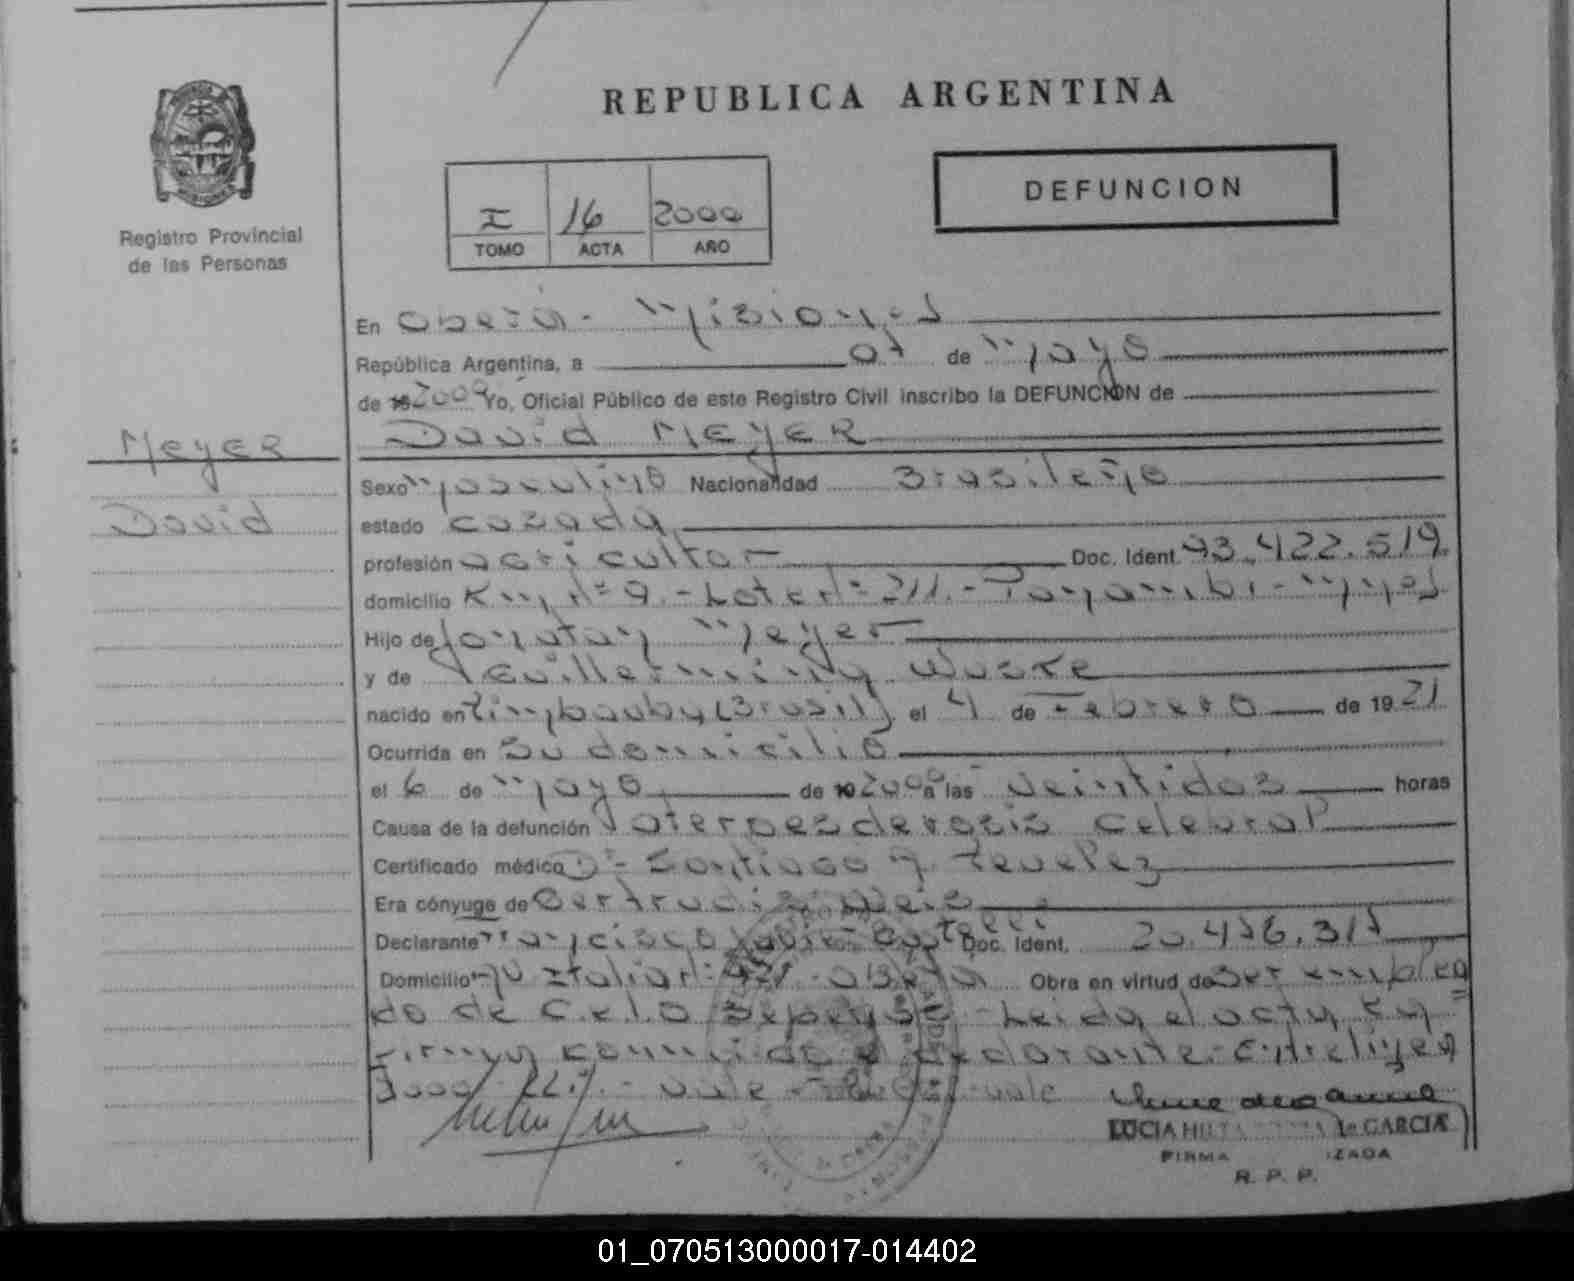 REPUBLICA ARGENTINA
Registro Provincial
de las Personas
I 16 2000
TOMO ACTA AÑO
DEFUNCION
En Oberá - Misiones
República Argentina, a 07 de Mayo
de 19 2000 Yo, Oficial Público de este Registro Civil inscribo la DEFUNCION de
Meyer
David MEYER
David
Sexo Masculino Nacionalidad Brasileño
estado casado
profesión agricultor Doc. Ident. 93.422.519
domicilio Km nº 9.- Lote nº 211.- Panambi - Mnes
Hijo de Jonatan Meyer
y de Guillermina
nacido en (Brasil) el 4 de Febrero de 1921
Ocurrida en su domicilio
el 6 de Mayo de 19 2000 a las veintidos horas
Causa de la defunción
Certificado médico Dr Santiago
Era cónyuge de Gertrudis Weis
Declarante Francisco Doc. Ident. 20.
Domicilio Italia Oberá Obra en virtud de ser emplea
do de C.E.L.O Leida el acta la
firma conmigo el declarante. Entrelinea
2000 vale vale
LUCIA GARCIA
FIRMA
R. P. P.
01_070513000017-014402